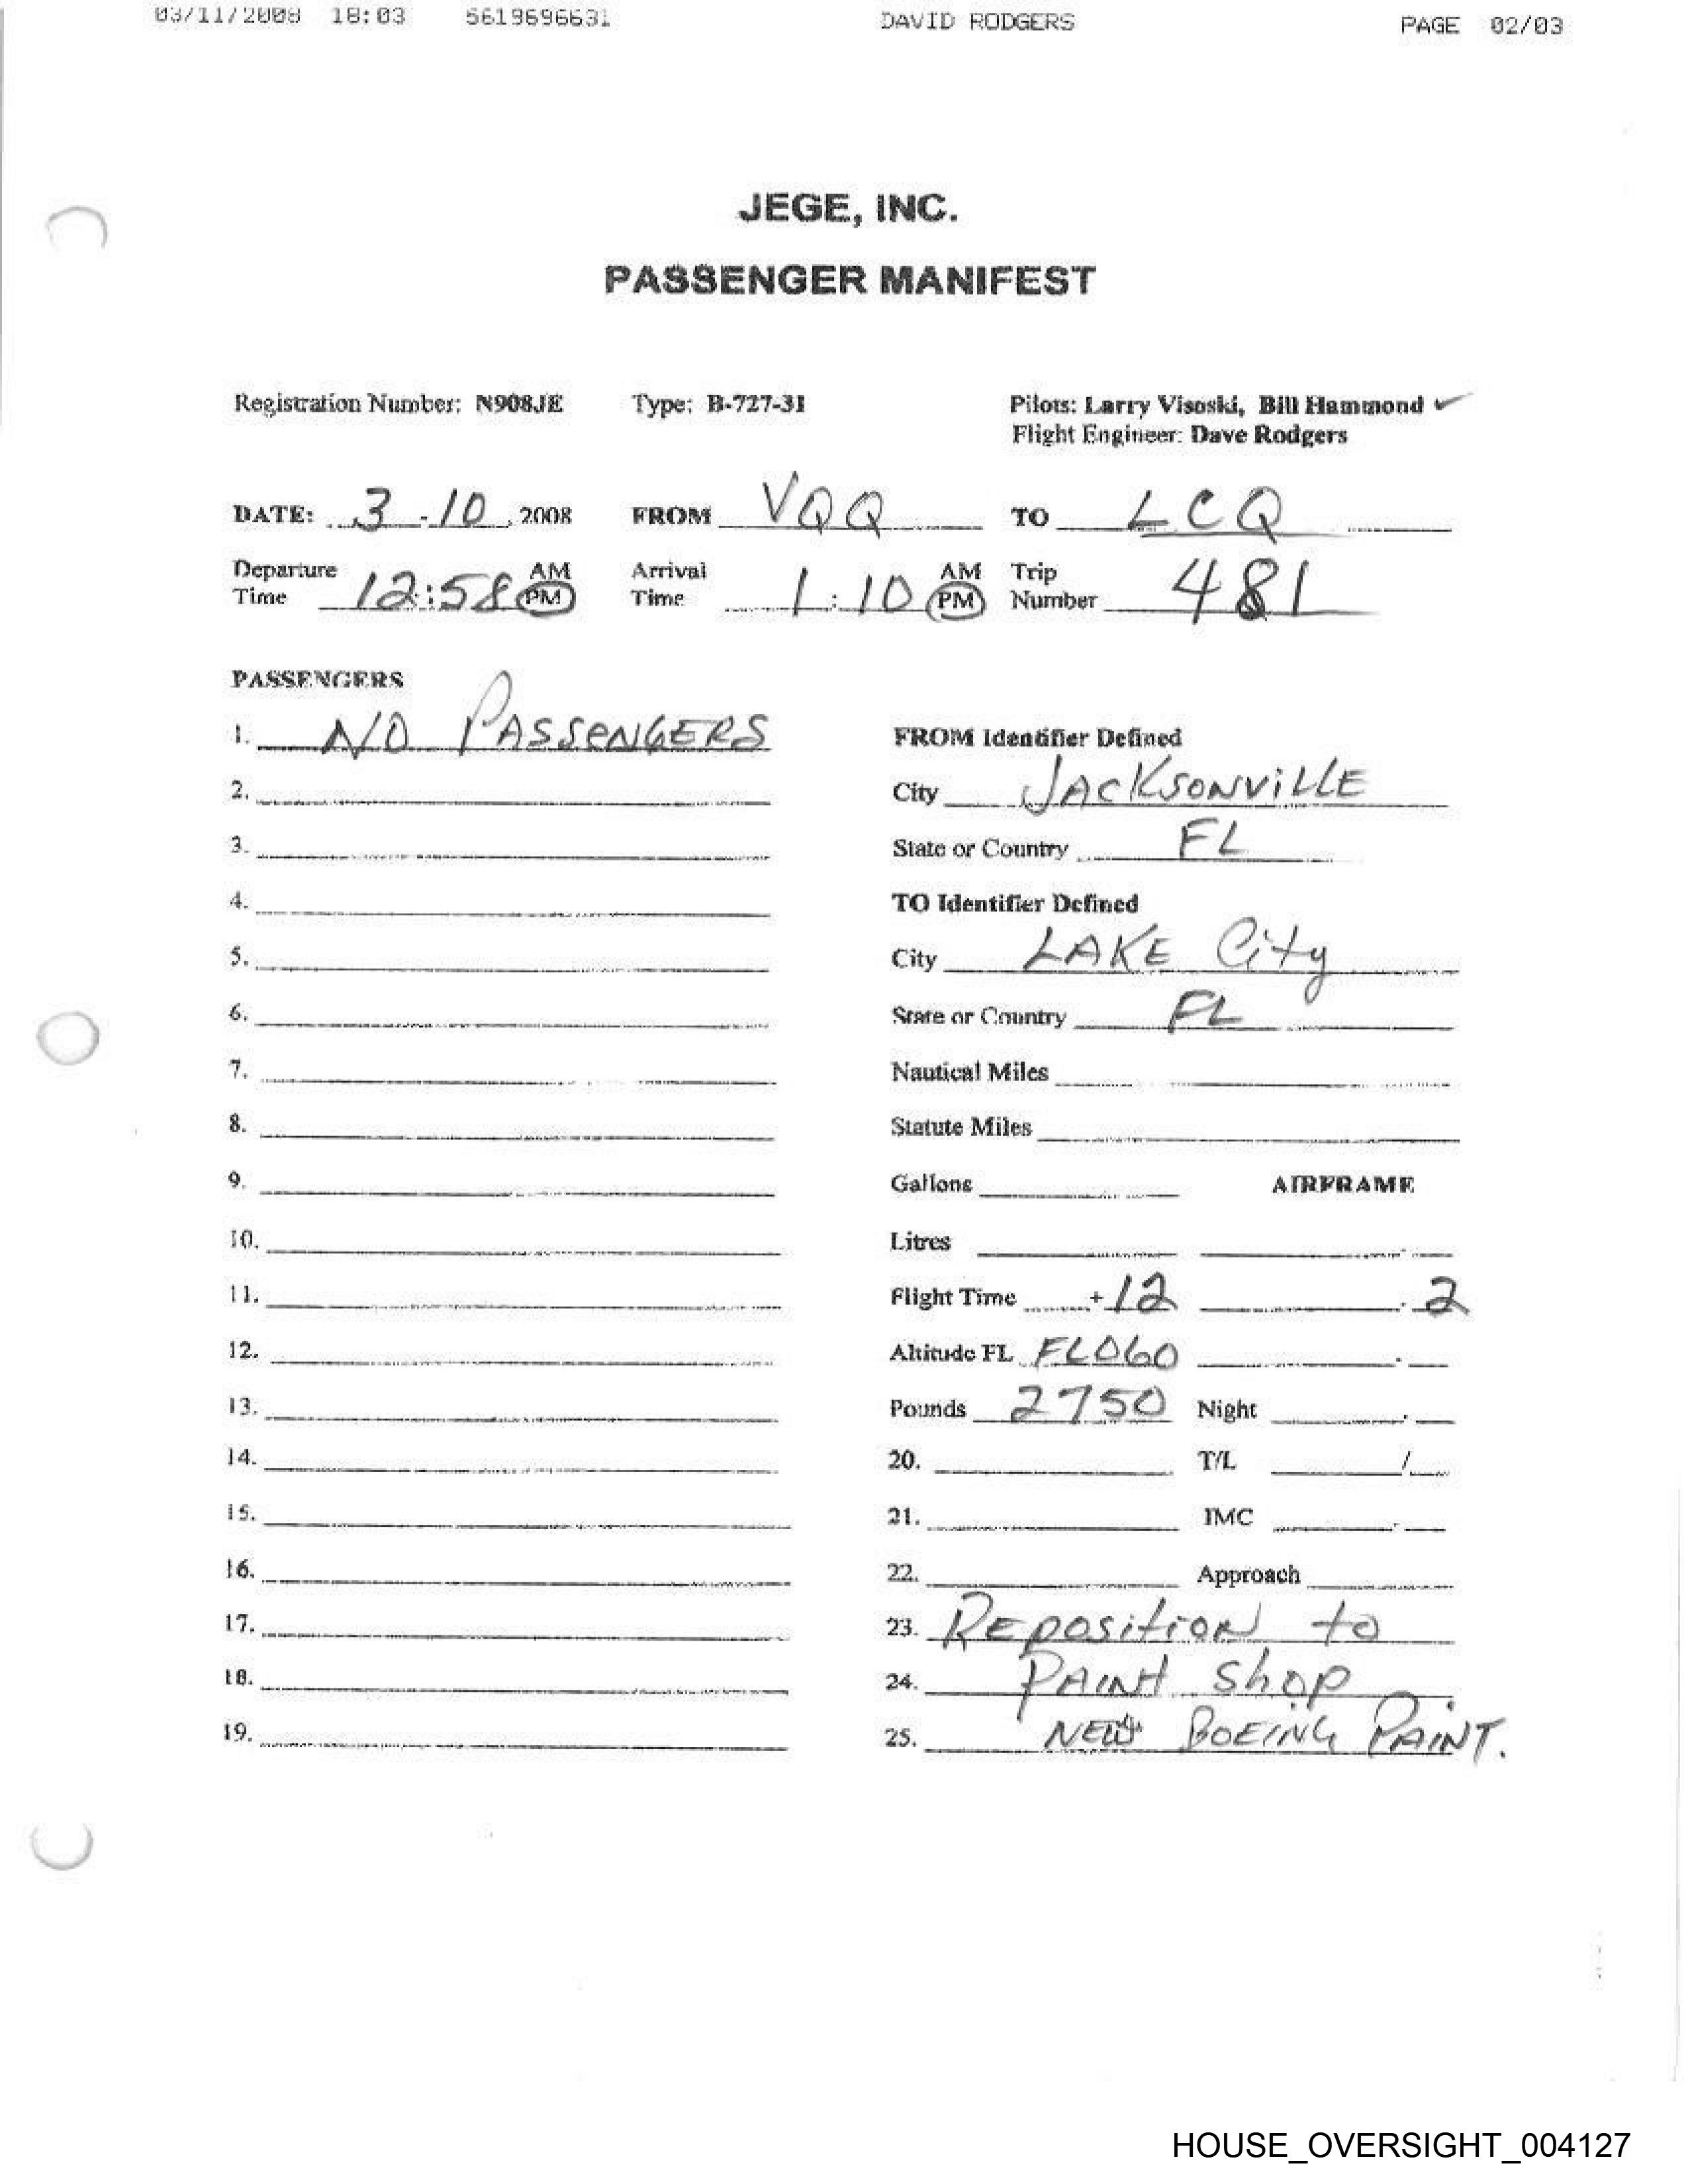 03/11/2008 18:03 5619696631 DAVID RODGERS PAGE 02/03
JEGE, INC.
PASSENGER MANIFEST
Registration Number: N908JE Type: B-727-31 Pilots: Larry Visoski, Bill Hammond ✓
Flight Engineer: Dave Rodgers
DATE: 3-10, 2008 FROM VQQ TO LCQ
Departure Time 12:58 AM PM Arrival Time 1:10 AM PM Trip Number 481
PASSENGERS
1. NO PASSENGERS
2.
3.
4.
5.
6.
7.
8.
9.
10.
11.
12.
13.
14.
15.
16.
17.
18.
19.
FROM Identifier Defined
City JACKSONVILLE
State or Country FL
TO Identifier Defined
City LAKE City
State or Country FL
Nautical Miles
Statute Miles
Gallons AIRFRAME
Litres
Flight Time +12 .2
Altitude FL FL060
Pounds 2750 Night
20. T/L /
21. IMC
22. Approach
23. REPOSITION to
24. PAINT Shop
25. NEW BOEING PAINT.
HOUSE_OVERSIGHT_004127